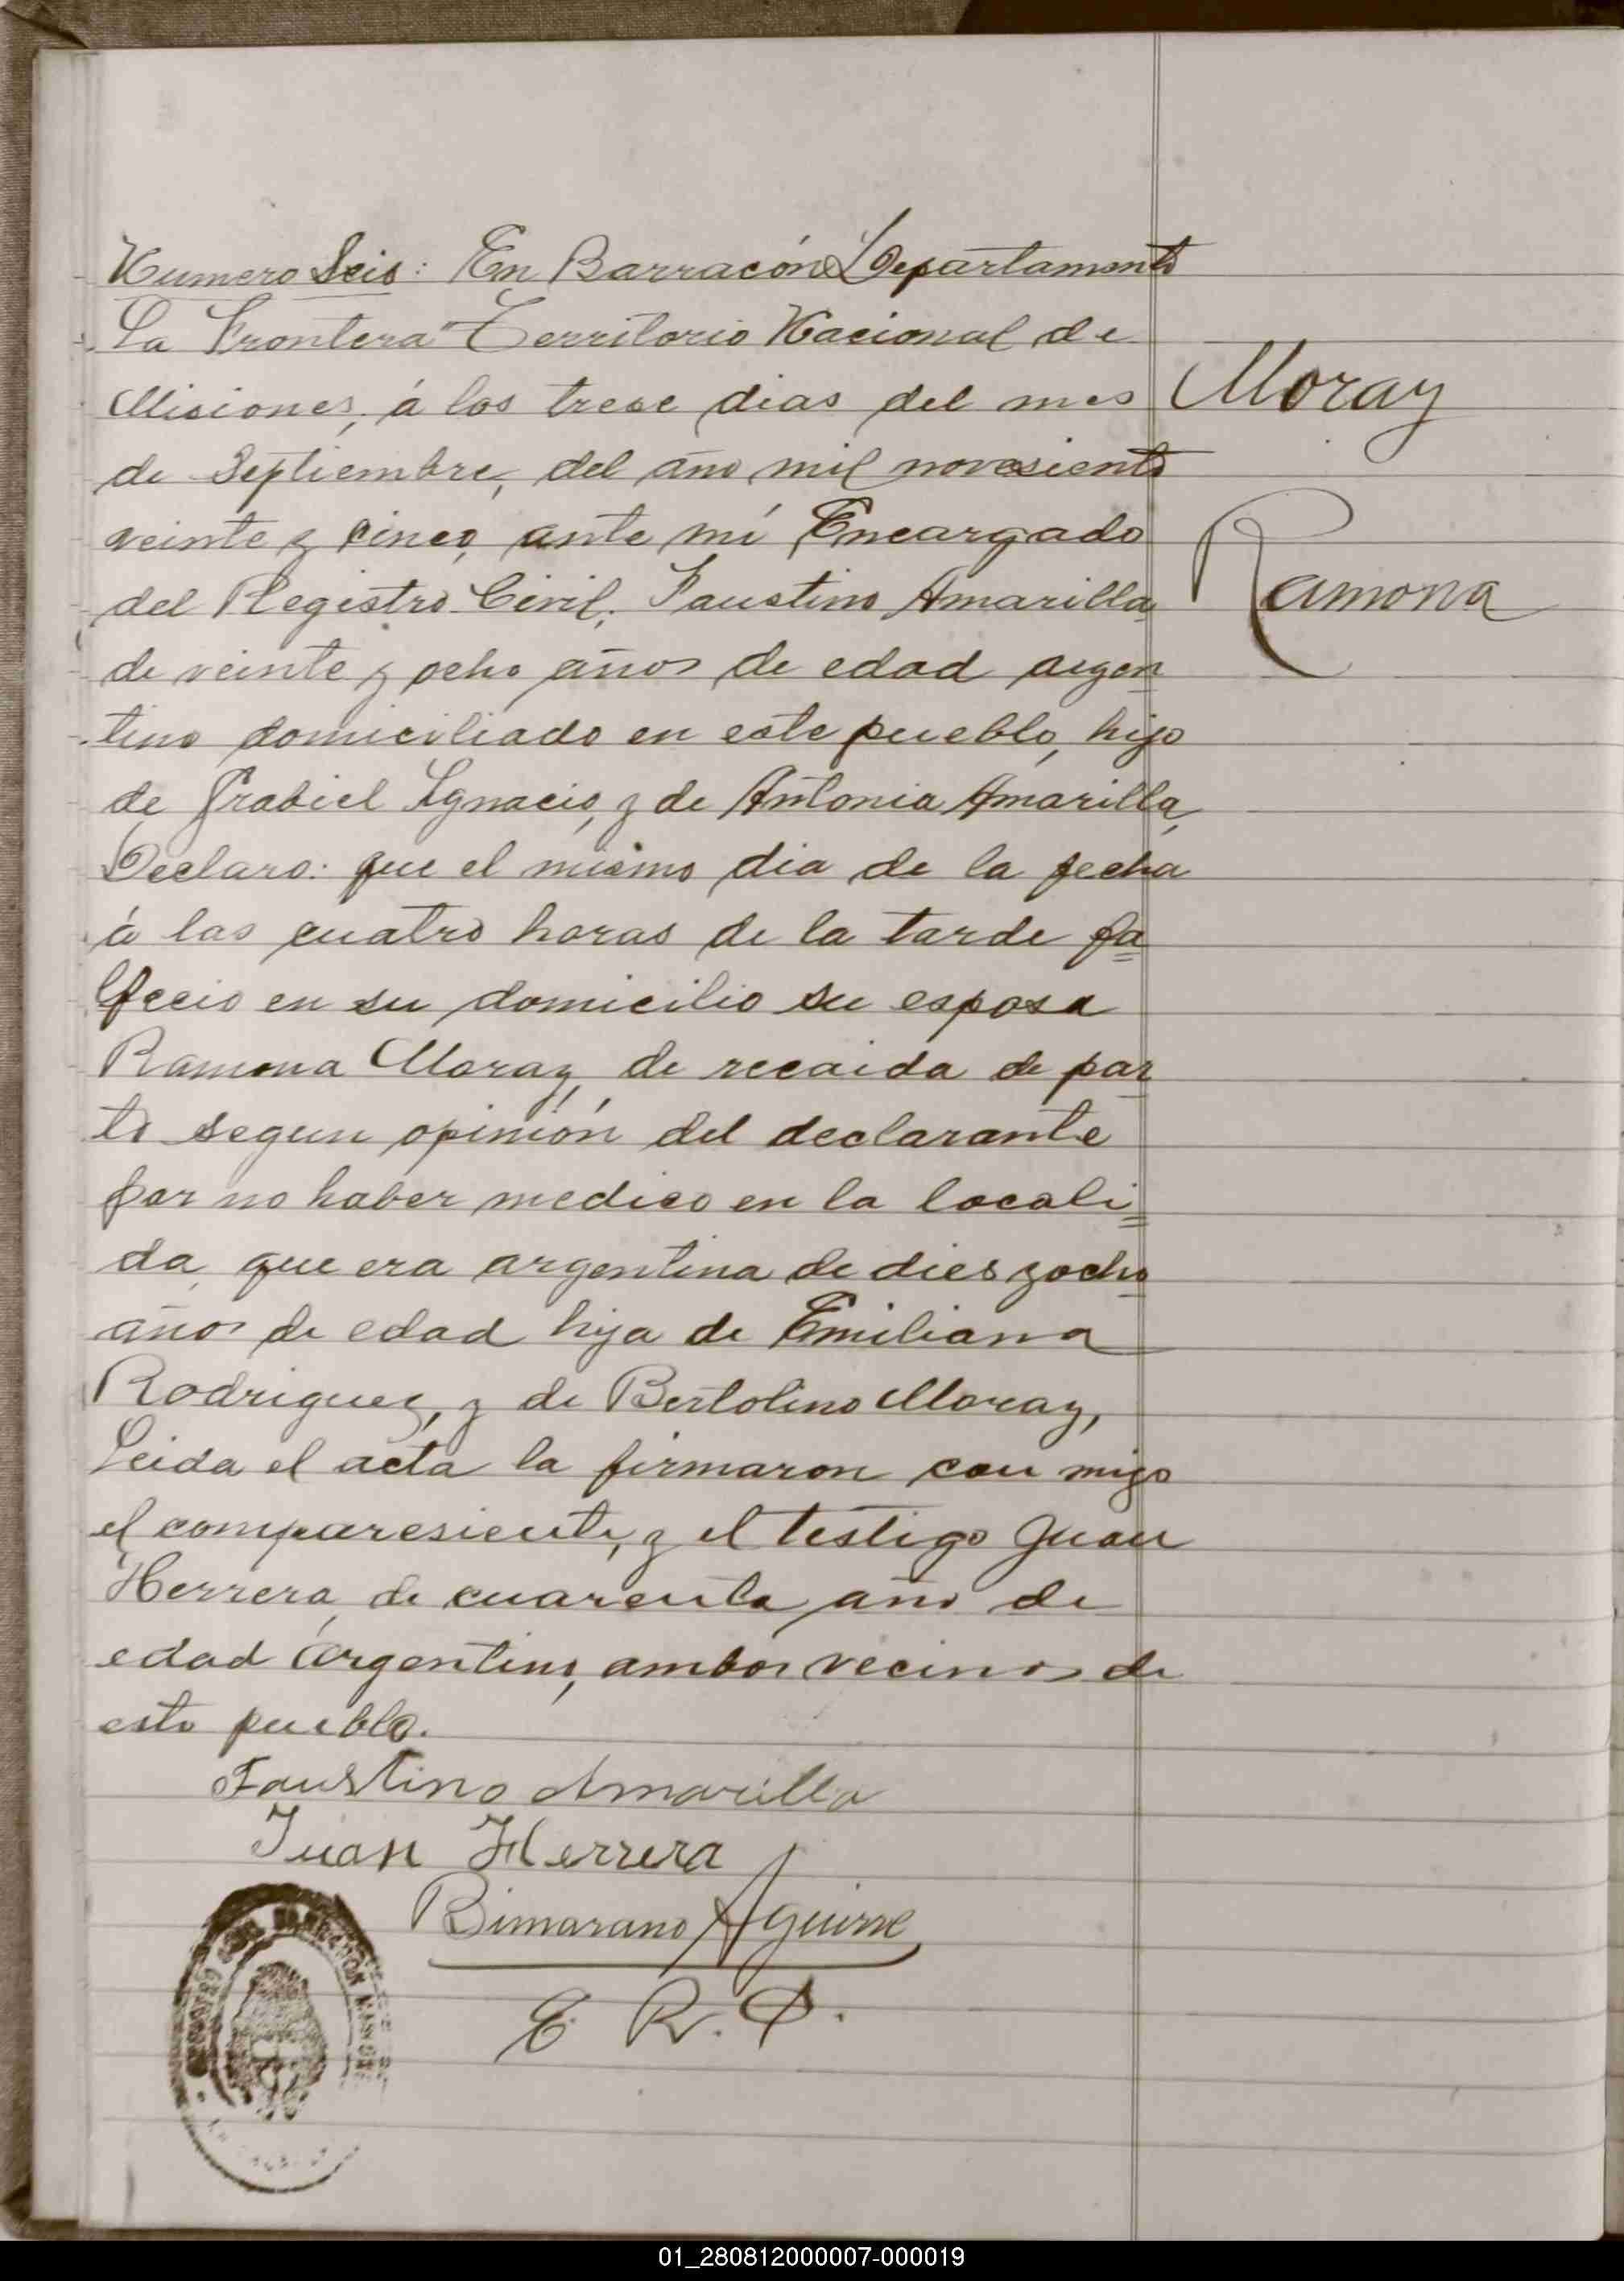 Numero Seis: En Barracón Departamento
"La Frontera" Territorio Nacional de
Misiones, á los trese dias del mes
de Septiembre, del año mil novesiento
veinte y cinco, ante mí Encargado
del Registro Civil; Faustino Amarilla,
de veinte y ocho años de edad argen
tino domiciliado en este pueblo, hijo
de Grabiel Ygnacio, y de Antonia Amarilla,
Declaro: que el mismo dia de la fecha
á las cuatro horas de la tarde fa
llecio en su domicilio su esposa
Ramona Moray, de recaida de par
to segun opinión del declarante
por no haber medico en la locali=
da, que era argentina de dies y ocho
años de edad hija de Emiliana
Rodriguez, y de Bertolino Moray,
Leida el acta la firmaron con migo
el comparesiente, y el testigo Juan
Herrera, de cuarenta año de
edad Argentino, ambos vecinos de
este pueblo.
Moray
Ramona
Faustino Amarilla
Juan Herrera
Bimarano Aguirre
E R.
REGISTRO CIVIL BARRACON MISIONES
01_280812000007-000019